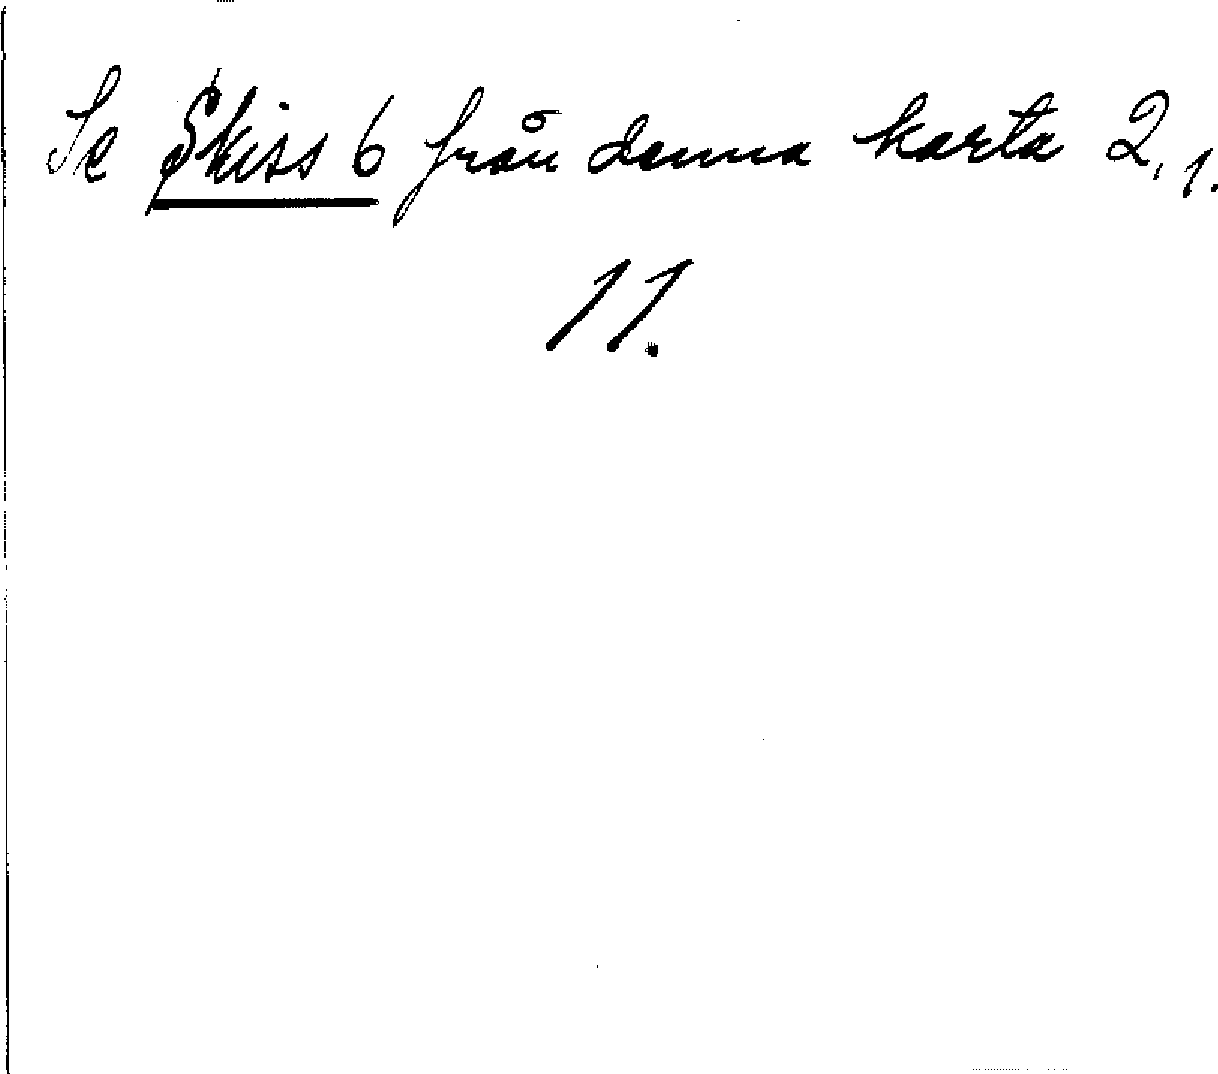 Se Skiss 6 från denna karta 2, 1.
11.